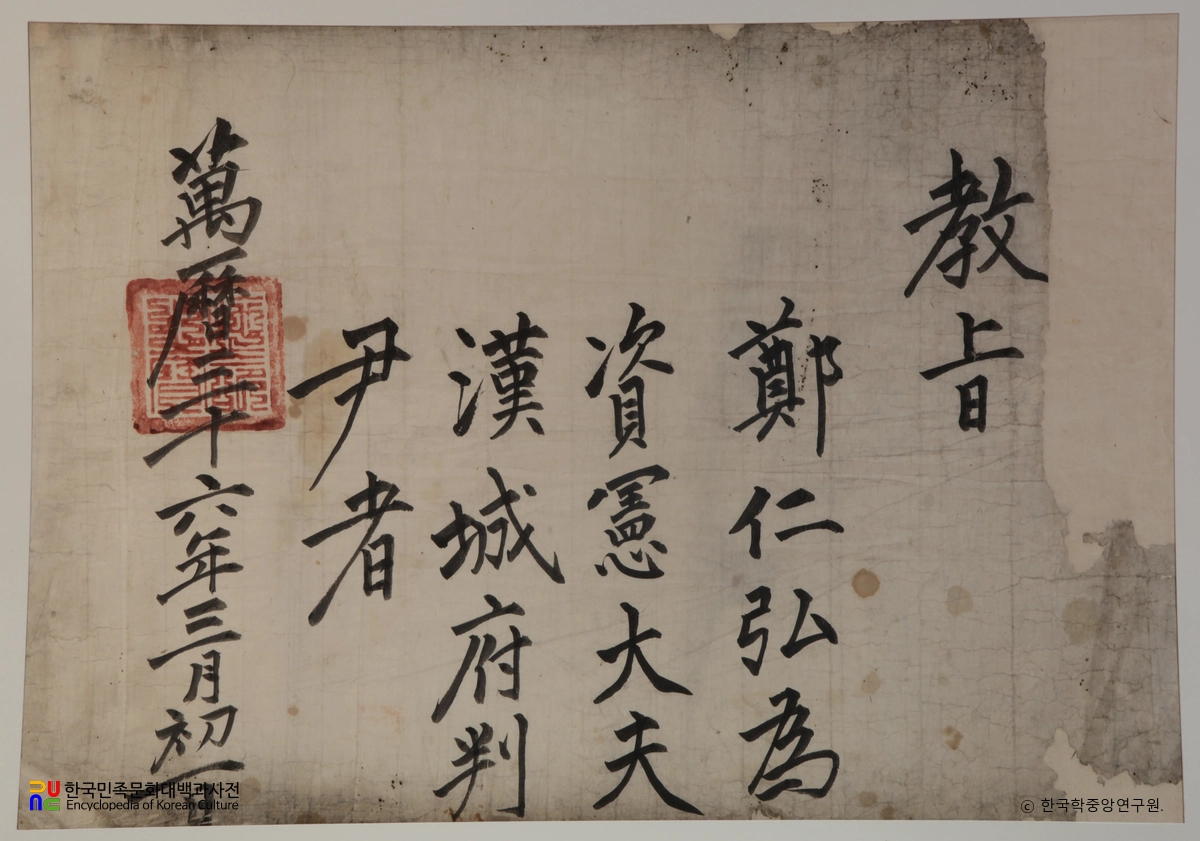 教旨
鄭仁弘為
資憲大夫
漢城府判
尹者
萬曆三十六年三月初一日
한국민족문화대백과사전
Encyclopedia of Korean Culture
ⓒ 한국학중앙연구원.